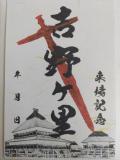 来場記念
吉野ヶ里
年月日